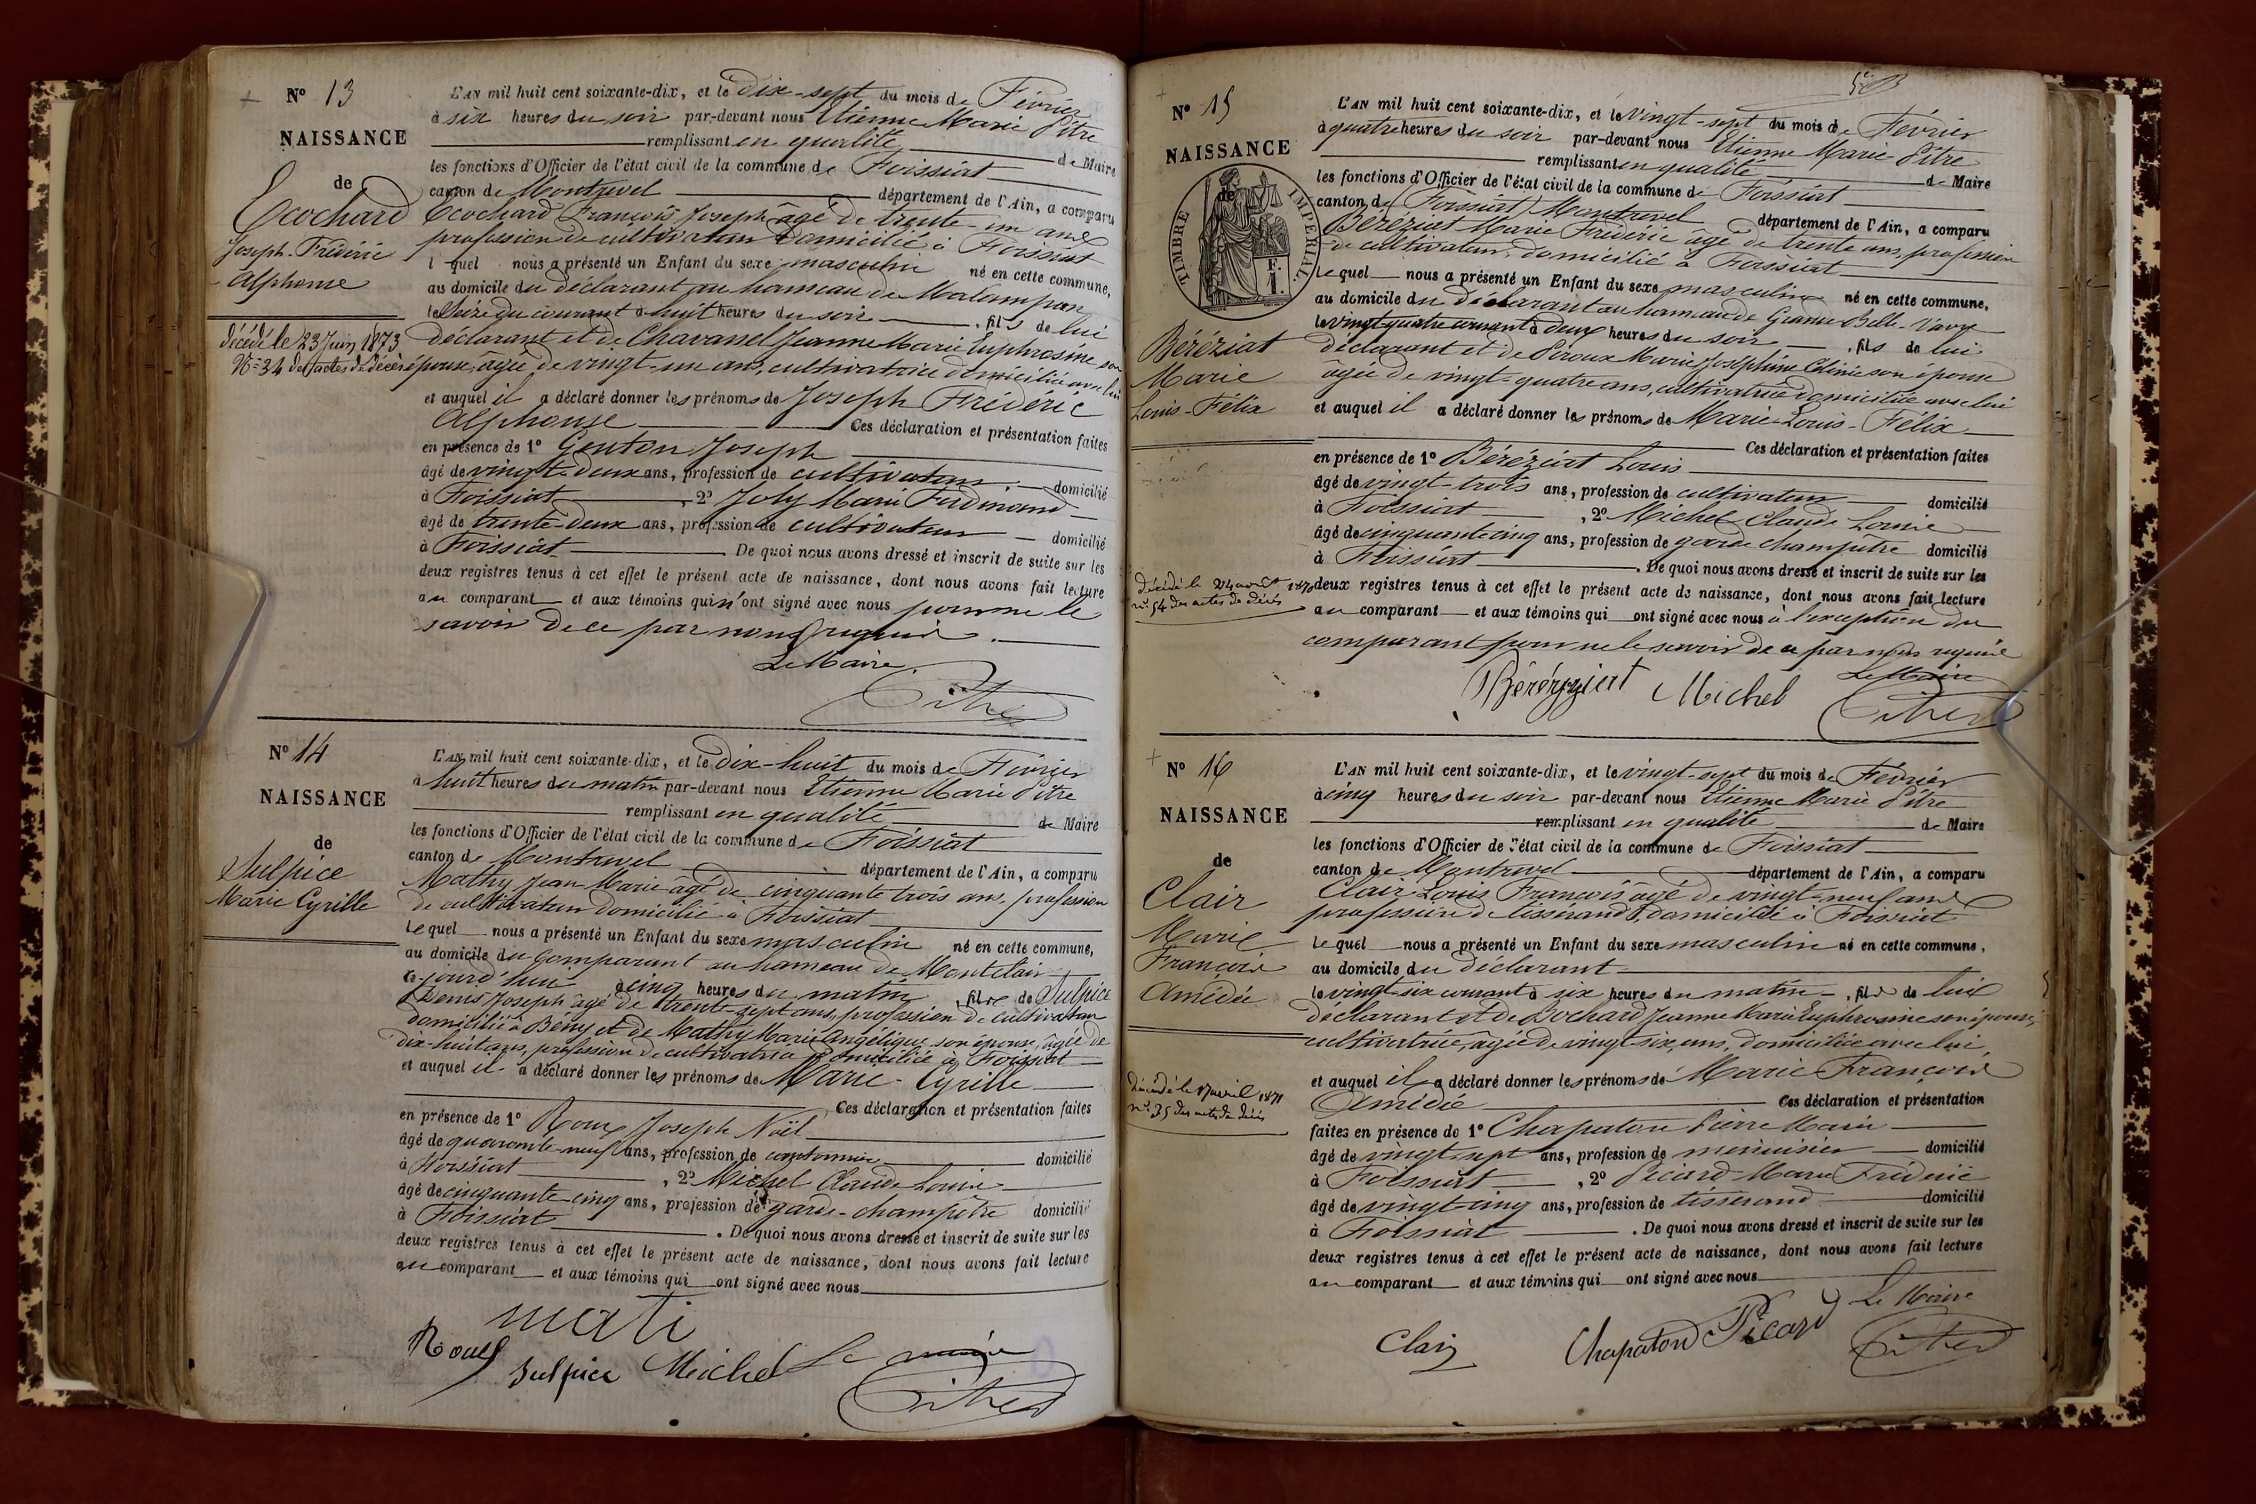 N° 13
NAISSANCE
de
Ecochard
Joseph-Frédéric
Alphonse
Décédé le 23 Juin 1873
N° 34 des actes de décès
L'AN mil huit cent soixante-dix, et le dix-sept du mois de Février
à six heures du soir par-devant nous Etienne Marie Pitre
remplissant en qualité de Maire
les fonctions d'Officier de l'état civil de la commune de Foissiat
canton de Montrevel département de l'Ain, a comparu
Ecochard François Joseph âgé de trente-un ans
profession de cultivateur domicilié à Foissiat
lequel nous a présenté un Enfant du sexe masculin né en cette commune,
au domicile du déclarant au hameau de
le Seize du courant à huit heures du soir, fils de lui
déclarant et de Chavanel Jeanne Marie Euphrosine son
épouse, âgée de vingt-un ans, cultivatrice domiciliée avec lui
et auquel il a déclaré donner les prénoms de Joseph Frédéric
Alphonse Ces déclaration et présentation faites
en présence de 1° Genton Joseph
âgé de vingt-deux ans, profession de cultivateur domicilié
à Foissiat, 2° Joly Marie Ferdinand
âgé de trente-deux ans, profession de cultivateur domicilié
à Foissiat. De quoi nous avons dressé et inscrit de suite sur les
deux registres tenus à cet effet le présent acte de naissance, dont nous avons fait lecture
au comparant et aux témoins qui n'ont signé avec nous pour ne le
savoir de ce par nous requis.
Le Maire
Pitre
N° 14
NAISSANCE
de
Sulpice
Marie Cyrille
L'AN mil huit cent soixante-dix, et le dix-huit du mois de Février
à huit heures du matin par-devant nous Etienne Marie Pitre
remplissant en qualité de Maire
les fonctions d'Officier de l'état civil de la commune de Foissiat
canton de Montrevel département de l'Ain, a comparu
Mathy Jean Marie âgé de cinquante trois ans, profession
de cultivateur domicilié à Foissiat
lequel nous a présenté un Enfant du sexe masculin né en cette commune,
au domicile du comparant au hameau de Montclair
ce jourd'hui à cinq heures du matin, fils de Sulpice
Denis Joseph âgé de trente-sept ans, profession de cultivateur
domicilié à Bény et de Mathy Marie Angélique son épouse, âgée de
dix-huit ans, profession de cultivatrice domiciliée à Foissiat
et auquel il a déclaré donner les prénoms de Marie-Cyrille
Ces déclaration et présentation faites
en présence de 1° Roux Joseph Noël
âgé de quarante-neuf ans, profession de cantonnier domicilié
à Foissiat, 2° Michel Claude Louis
âgé de cinquante-cinq ans, profession de garde-champêtre domicilié
à Foissiat. De quoi nous avons dressé et inscrit de suite sur les
deux registres tenus à cet effet le présent acte de naissance, dont nous avons fait lecture
au comparant et aux témoins qui ont signé avec nous
mati
Roux Sulpice Michel Le maire
Pitre
N° 15
NAISSANCE
de
TIMBRE IMPÉRIAL
Béréziat
Marie
Louis-Félix
Décédé le 24 août 1870
n° 54 des actes de décès
L'AN mil huit cent soixante-dix, et le vingt-sept du mois de Février
à quatre heures du soir par-devant nous Etienne Marie Pitre
remplissant en qualité de Maire
les fonctions d'Officier de l'état civil de la commune de Foissiat
canton de (Foissiat) Montrevel département de l'Ain, a comparu
Béréziat Marie Frédéric âgé de trente ans, profession
de cultivateur, domicilié à Foissiat
lequel nous a présenté un Enfant du sexe masculin né en cette commune,
au domicile du déclarant au hameau de
le vingt-quatre courant à deux heures du soir, fils de lui
déclarant et de Piroux Marie Joséphine Célinie son épouse
âgée de vingt-quatre ans, cultivatrice domiciliée avec lui
et auquel il a déclaré donner les prénoms de Marie-Louis-Félix
Ces déclaration et présentation faites
en présence de 1° Béréziat Louis
âgé de vingt-trois ans, profession de cultivateur domicilié
à Foissiat, 2° Michel Claude Louis
âgé de cinquante cinq ans, profession de garde champêtre domicilié
à Foissiat. De quoi nous avons dressé et inscrit de suite sur les
deux registres tenus à cet effet le présent acte de naissance, dont nous avons fait lecture
au comparant et aux témoins qui ont signé avec nous à l'exception du
comparant pour ne le savoir de ce par nous requis
Le Maire
Béréziat Michel Pitre
N° 16
NAISSANCE
de
Clair
Marie
François
Amédée
Décédé le 17 avril 1871
n° 35 des actes de décès
L'AN mil huit cent soixante-dix, et le vingt-sept du mois de Février
à cinq heures du soir par-devant nous Etienne Marie Pitre
remplissant en qualité de Maire
les fonctions d'Officier de l'état civil de la commune de Foissiat
canton de Montrevel département de l'Ain, a comparu
Clair Louis François âgé de vingt-neuf ans
profession de tisserand domicilié à Foissiat
lequel nous a présenté un Enfant du sexe masculin né en cette commune,
au domicile du déclarant
le vingt-six courant à six heures du matin, fils de lui
déclarant et de Bochard Jeanne Marie Euphrosine son épouse,
cultivatrice, âgée de vingt-six ans, domiciliée avec lui
et auquel il a déclaré donner les prénoms de Marie François
Amédée Ces déclaration et présentation
faites en présence de 1° Chapaton Pierre Marie
âgé de vingt-sept ans, profession de menuisier domicilié
à Foissiat, 2° Picard Marie Frédéric
âgé de vingt-cinq ans, profession de tisserand domicilié
à Foissiat. De quoi nous avons dressé et inscrit de suite sur les
deux registres tenus à cet effet le présent acte de naissance, dont nous avons fait lecture
au comparant et aux témoins qui ont signé avec nous
Le Maire
Clair Chapaton Picard Pitre